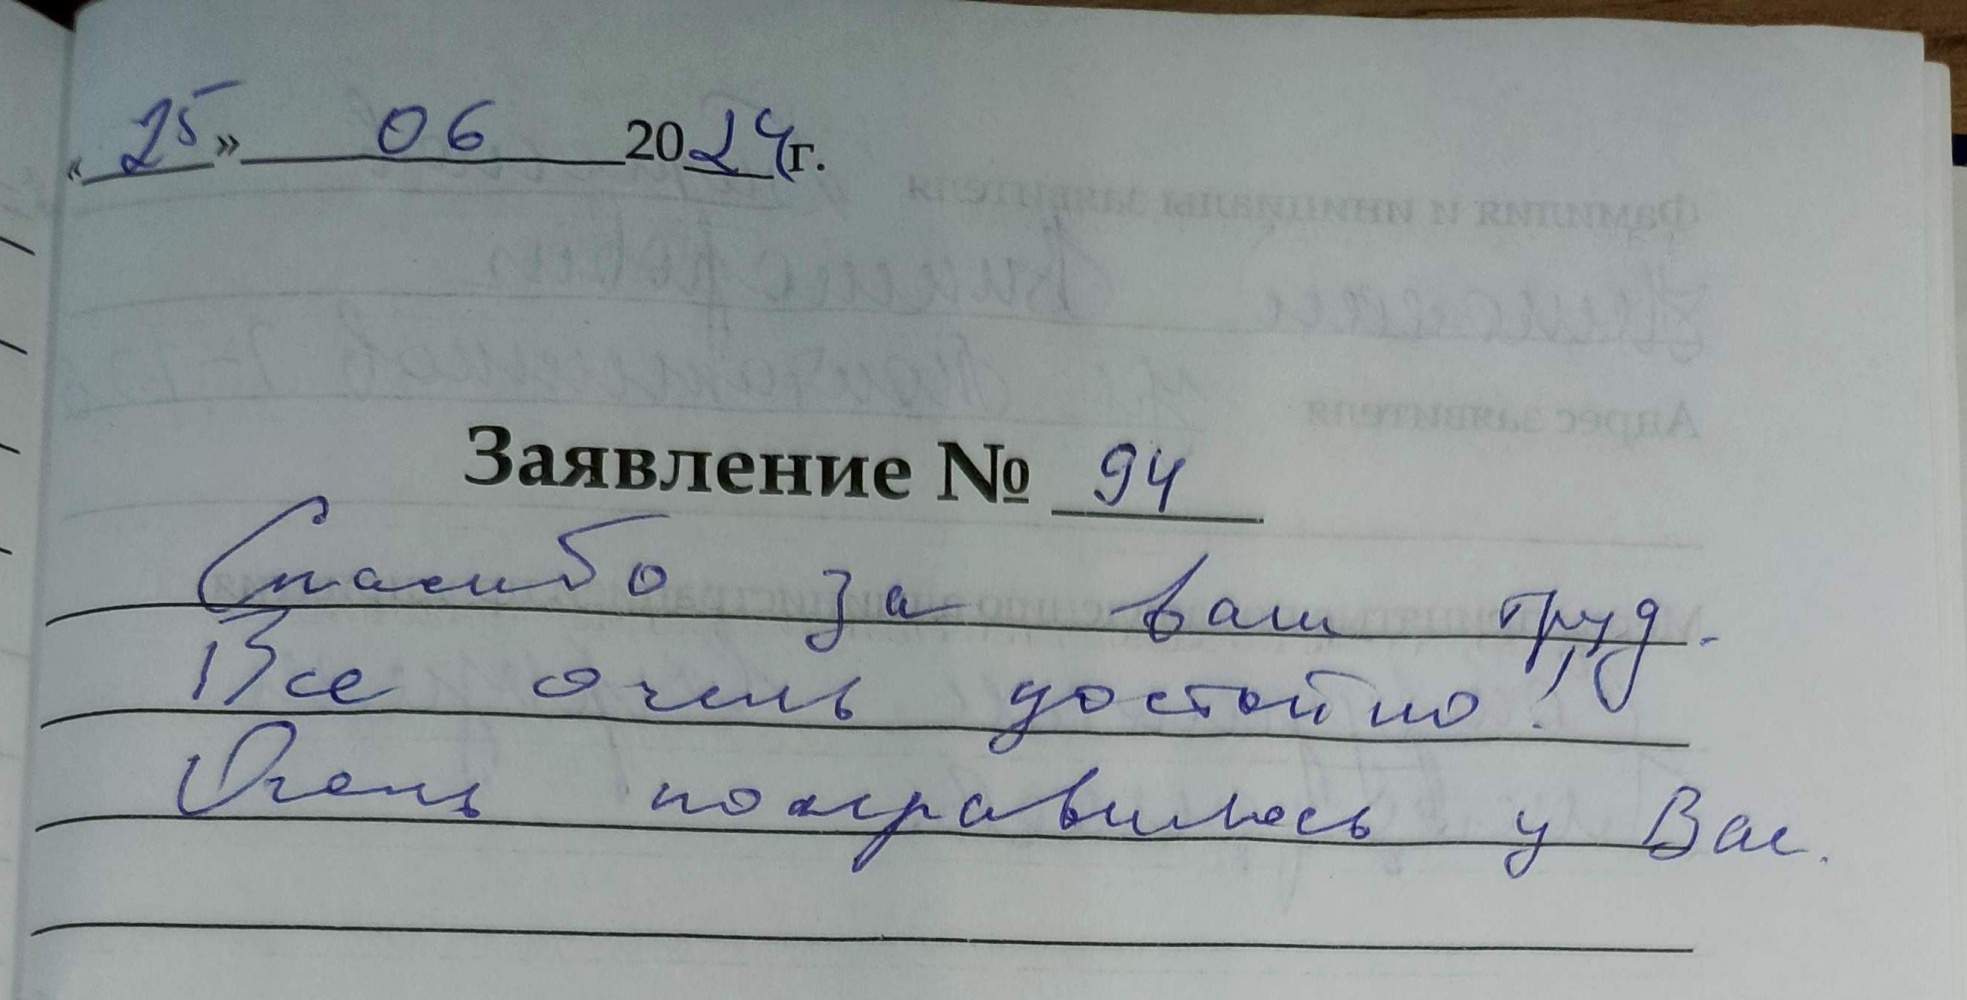 «25» 06 2024г.
Заявление № 94
Спасибо за ваш труд.
Все очень достойно!
Очень понравилось у Вас.